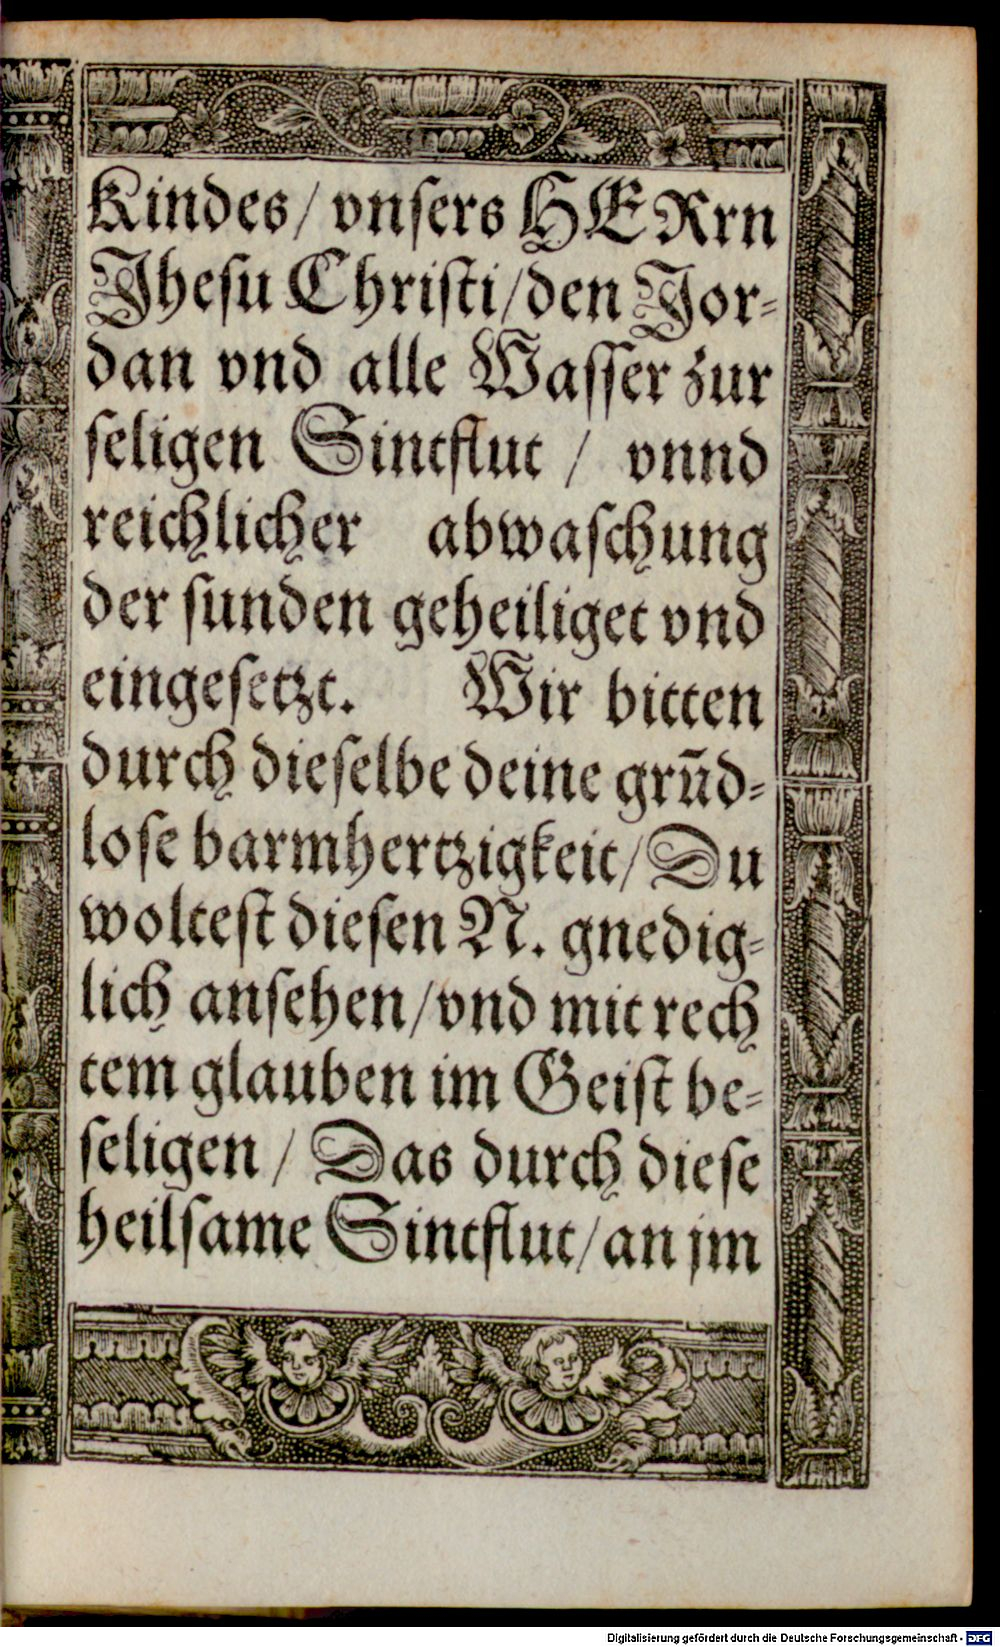 Kindes/ vnſers HERrn
Jheſu Chriſti/den Jor⸗
dan vnd alle Waſſer zur
ſeligen Sintflut / vnnd
reichlicher abwaſchung
der ſunden geheiliget vnd
eingeſetzt. Wir bitten
durch dieſelbe deine grũd⸗
loſe barmhertzigkeit/ Du
wolteſt dieſen N. gnedig⸗
lich anſehen/vnd mit rech
tem glauben im Geiſt be⸗
ſeligen / Das durch dieſe
heilſame Sintflut/an jm
Digitalisierung gefördert durch die Deutsche Forschungsgemeinschaft - DFG